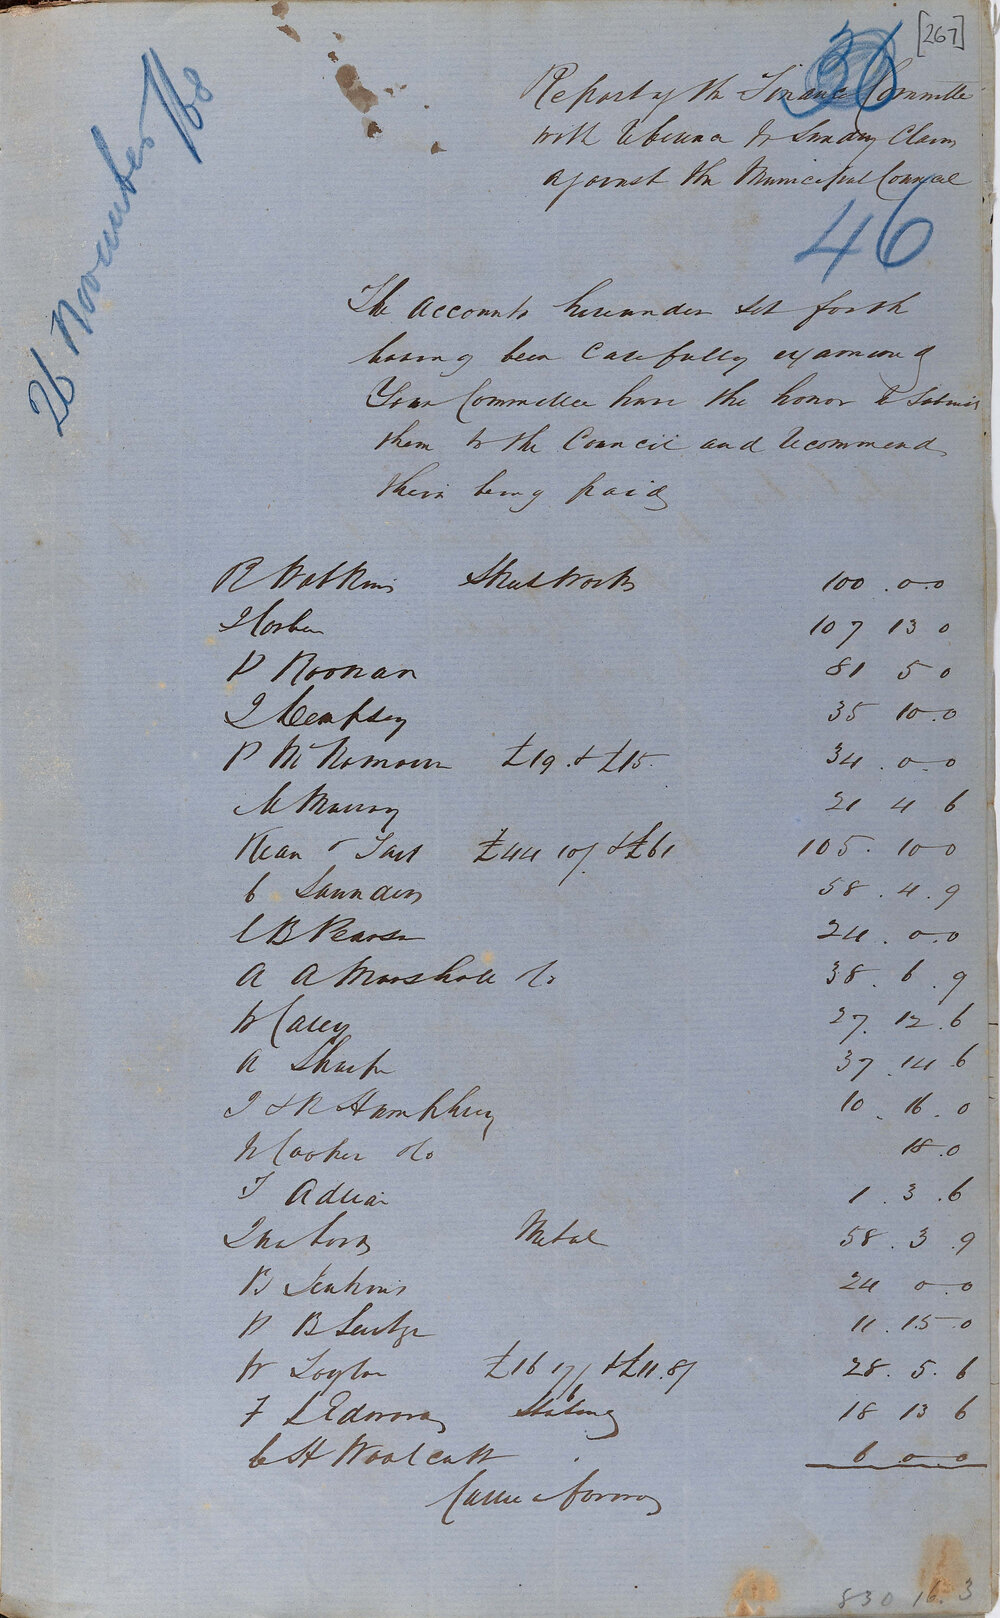 [267]
36
26 November /68
Report of the Finance Committee
with reference to Sundry Claims
against the Municipal Council
46
The Accounts hereunder set forth
having been Carefully examined
Your Committee have the honor to Submit
them to the Council and recommend
their being paid
R Watkins Street Works 100 . 0 . 0
107 13 0
P Noonan 81 5 0
J Dempsey 35 10 . 0
P McNamara £19 . & £15 . 34 . 0 . 0
M Murray 21 4 6
Kean & Tait £44 10/ & £61 105 . 10 0
C Saunders 58 . 4 . 9
C B Pearse 24 . 0 . 0
A A Marshall do 38 . 6 . 9
W Carey 27 . 12 . 6
A Sharpe 37 . 14 6
J & R Humphrey 10 . 16 . 0
W Cooker do 18 . 0
T Adrian 1 . 3 . 6
Metal 58 . 3 . 9
B Jenkins 24 0 0
P B 11 . 15 . 0
W Taylor £16 17/6 & £11 . 8/ 28 . 5 . 6
F L Edwards 18 13 6
C H Woolcott 6 0 0
Carried forward
830 16 . 3